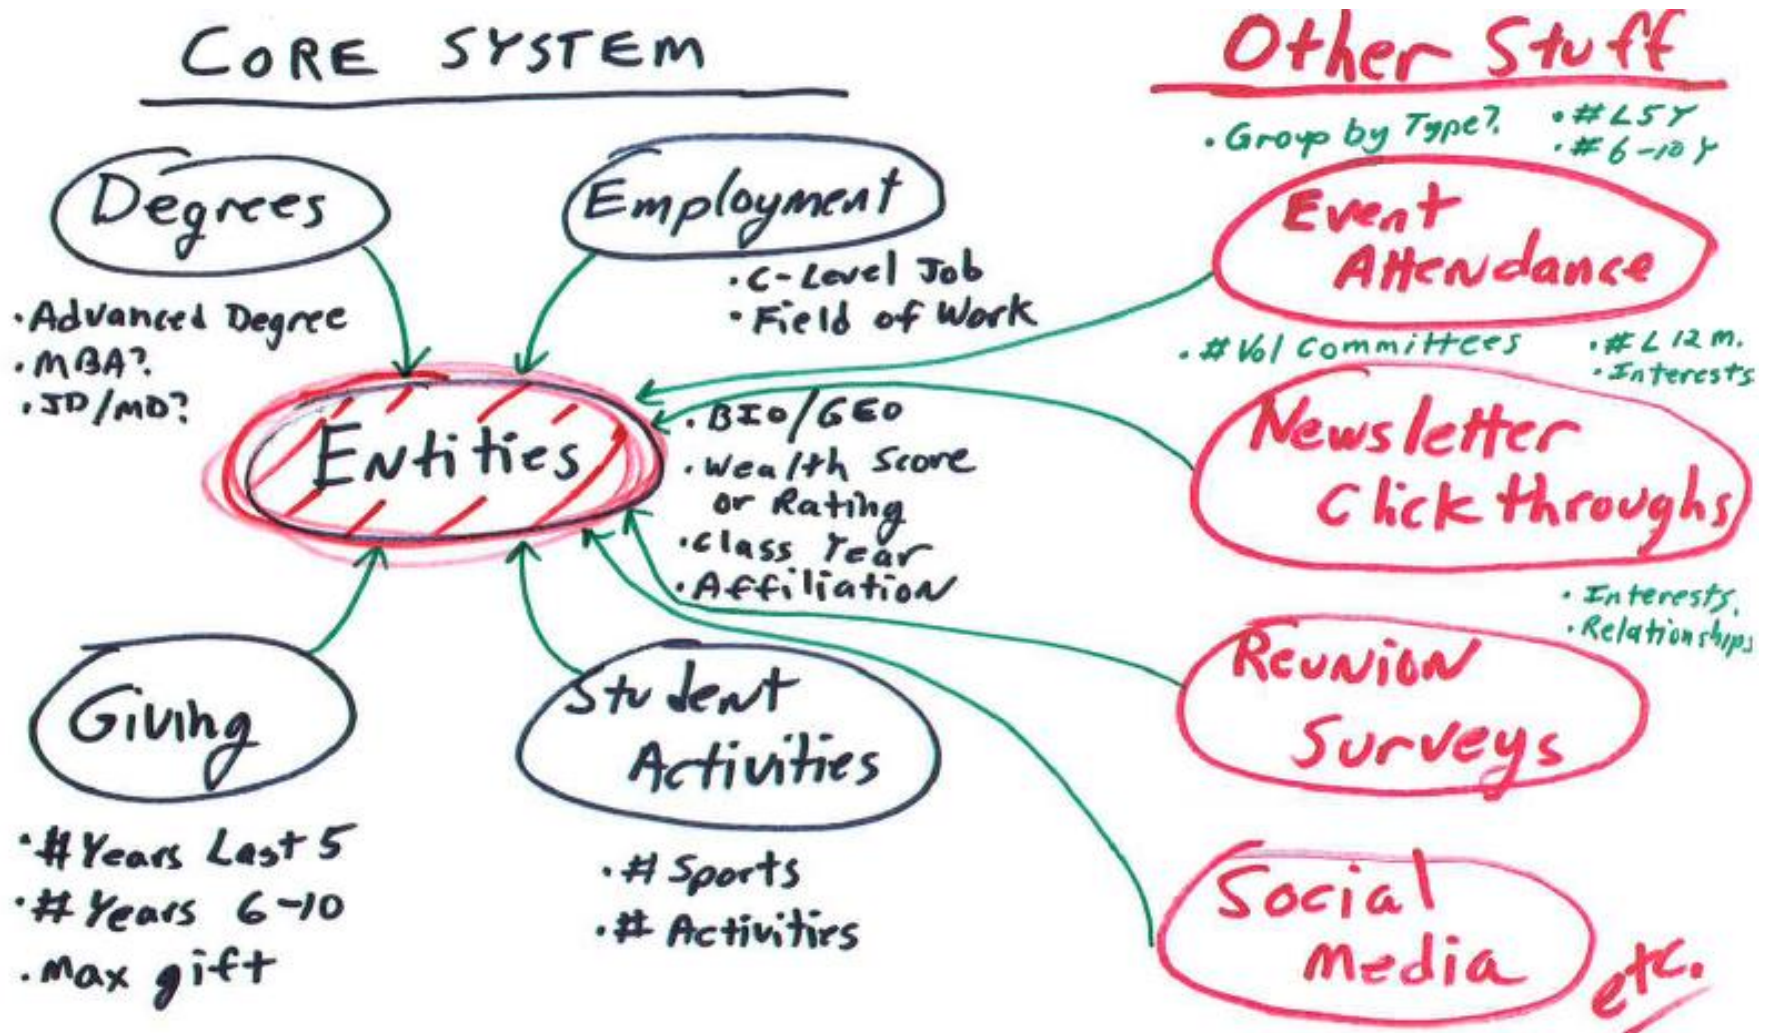 CORE SYSTEM
Degrees
• Advanced Degree
• MBA?
• JD/MD?
Employment
• C-Level Job
• Field of Work
Entities
• BIO/GEO
• Wealth Score
or Rating
• Class Year
• Affiliation
Giving
• # Years Last 5
• # Years 6-10
• Max gift
Student
Activities
• # Sports
• # Activities
Other Stuff
• Group by Type?
• # L5Y
• # 6-10Y
Event
Attendance
• # Vol Committees
• # L12m.
• Interests
Newsletter
Click throughs
• Interests,
• Relationships
Reunion
Surveys
Social
Media
etc.